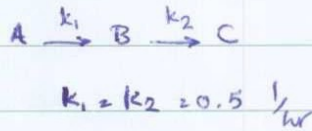 A —k₁→ B —k₂→ C
k₁ = k₂ = 0.5 1/hr